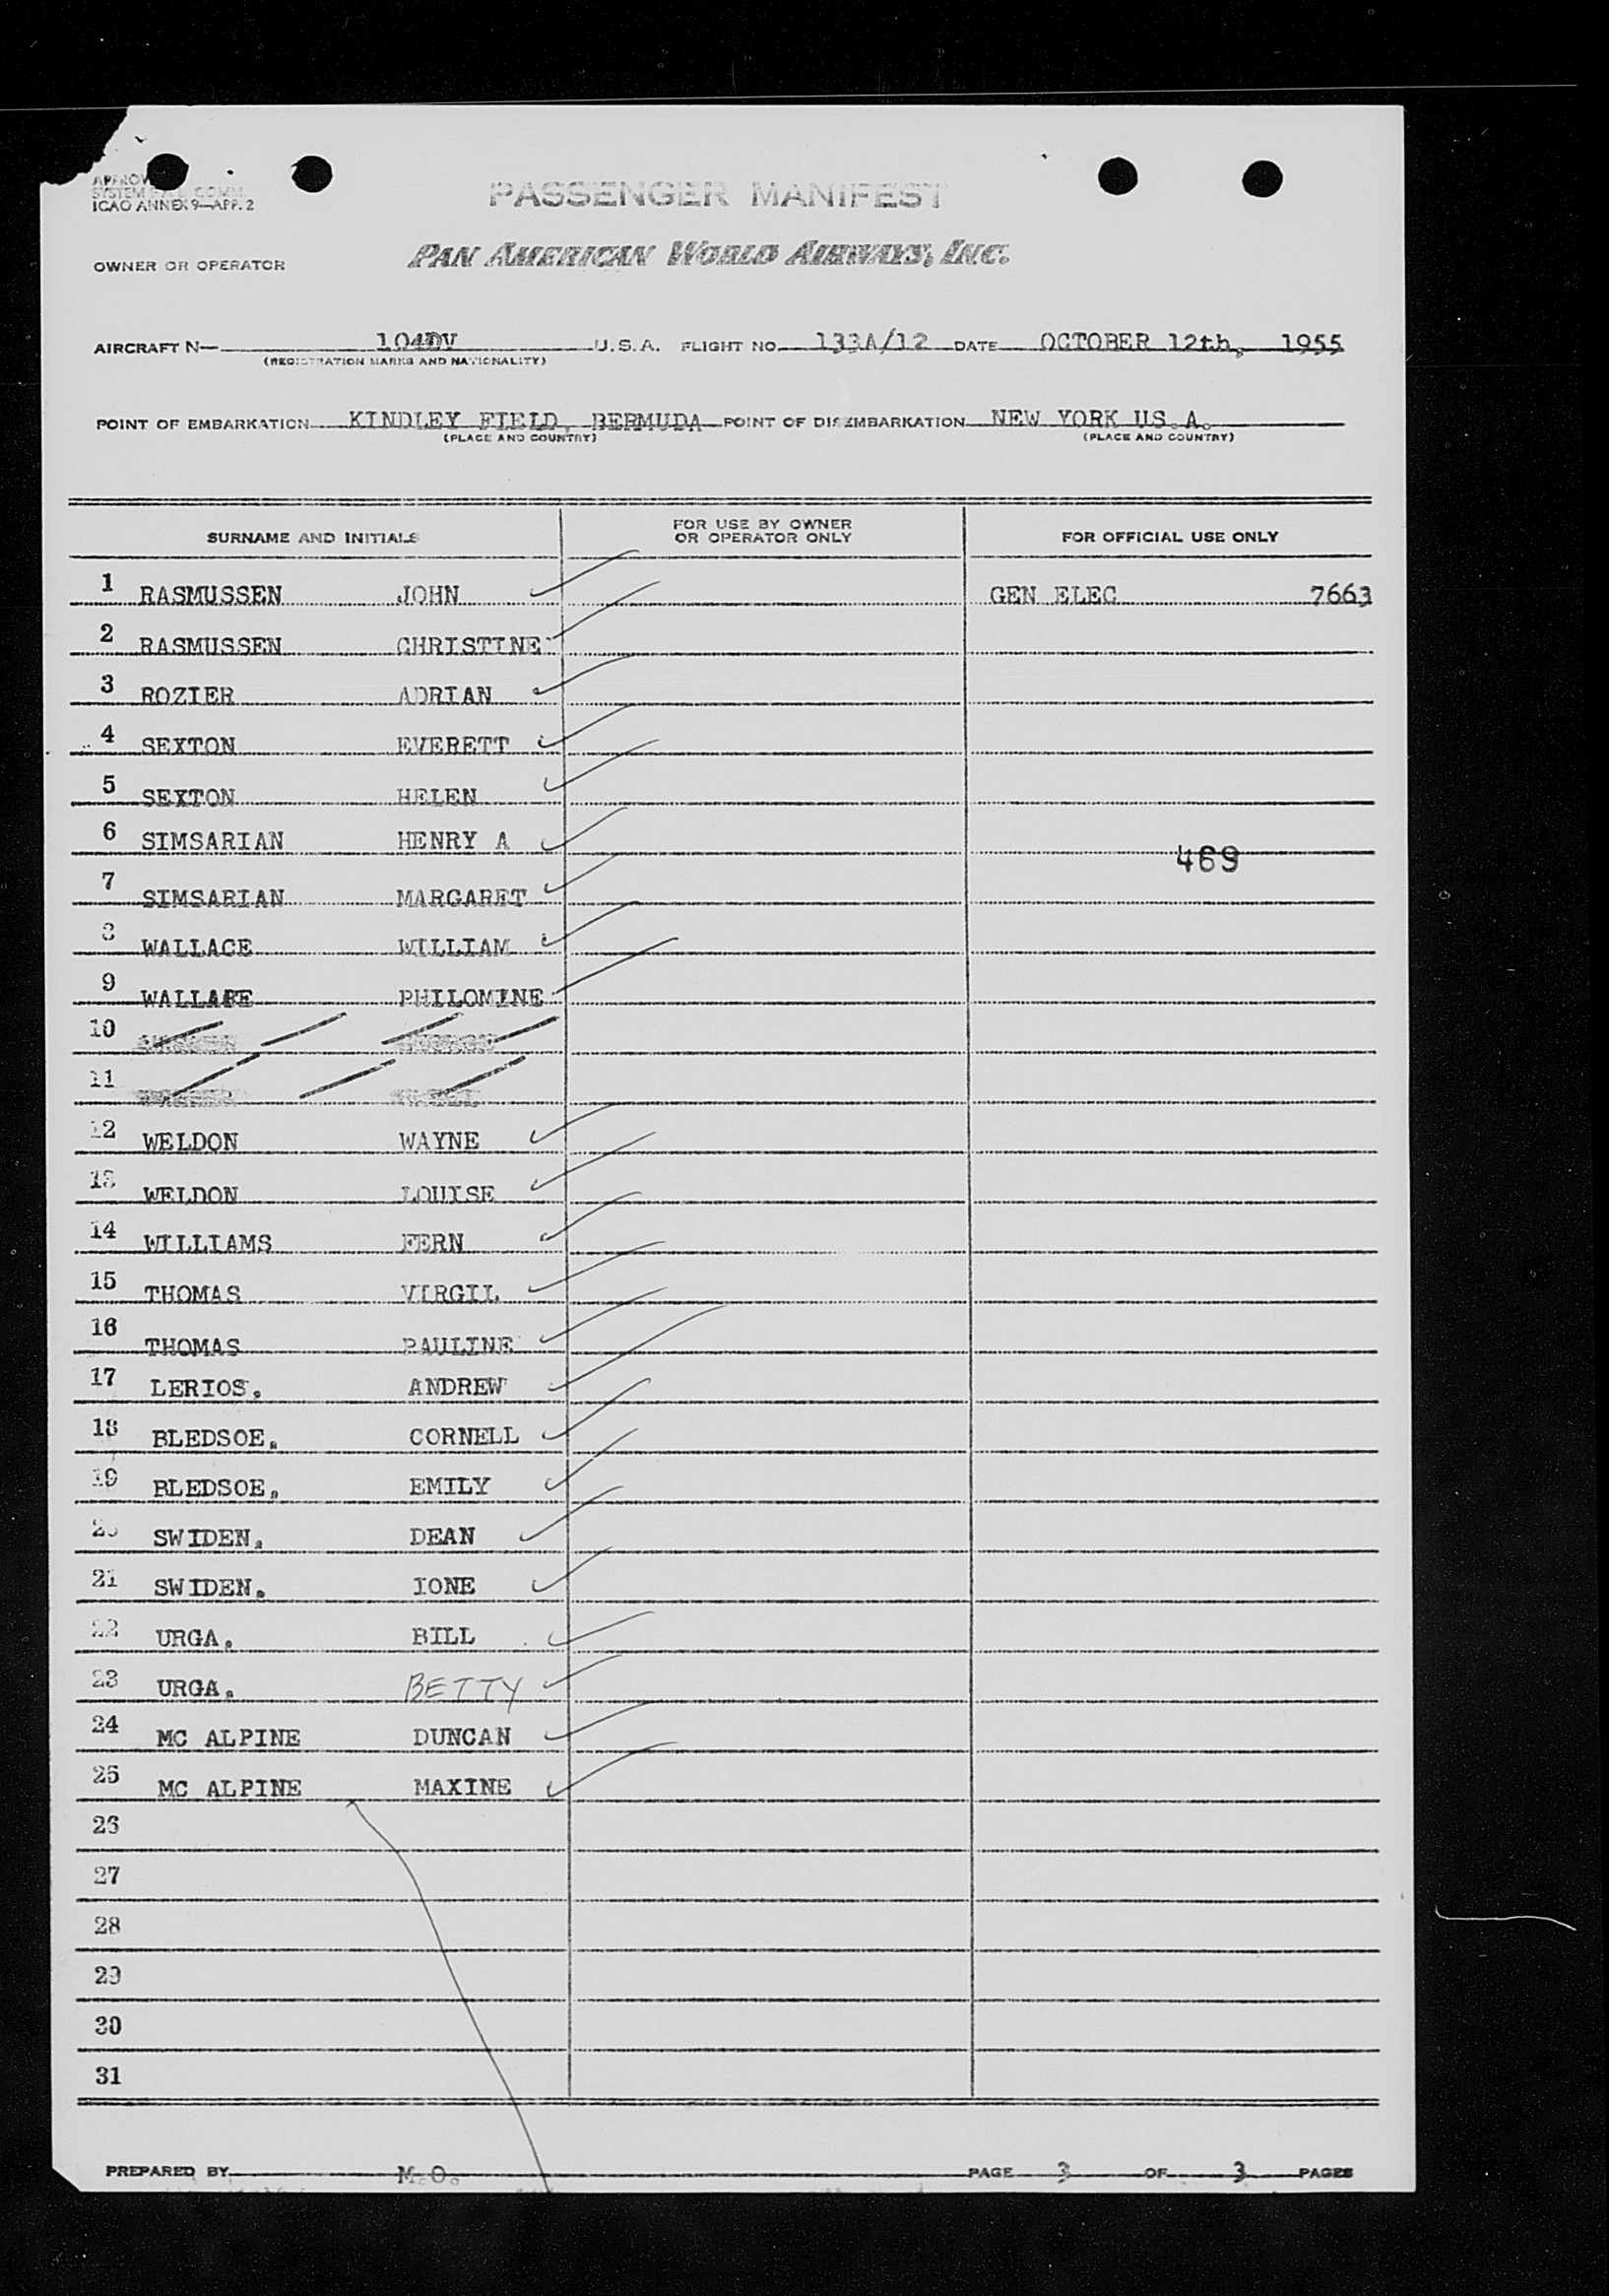 ICAO ANNEX 9—APP. 2
PASSENGER MANIFEST
OWNER OR OPERATOR PAN AMERICAN WORLD AIRWAYS, INC.
AIRCRAFT N— 104DV U.S.A. FLIGHT NO. 133A/12 DATE OCTOBER 12th, 1955
(REGISTRATION MARKS AND NATIONALITY)
POINT OF EMBARKATION KINDLEY FIELD, BERMUDA POINT OF DISEMBARKATION NEW YORK US.A.
(PLACE AND COUNTRY) (PLACE AND COUNTRY)
SURNAME AND INITIALS FOR USE BY OWNER OR OPERATOR ONLY FOR OFFICIAL USE ONLY
1 RASMUSSEN JOHN GEN ELEC 7663
2 RASMUSSEN CHRISTINE
3 ROZIER ADRIAN
4 SEXTON EVERETT
5 SEXTON HELEN
6 SIMSARIAN HENRY A
469
7 SIMSARIAN MARGARET
8 WALLACE WILLIAM
9 PHILOMINE
10
11
12 WELDON WAYNE
13 WELDON LOUISE
14 WILLIAMS FERN
15 THOMAS VIRGIL
16 THOMAS PAULINE
17 LERIOS, ANDREW
18 BLEDSOE, CORNELL
19 BLEDSOE, EMILY
20 SWIDEN, DEAN
21 SWIDEN, IONE
22 URGA, BILL
23 URGA, BETTY
24 MC ALPINE DUNCAN
25 MC ALPINE MAXINE
26
27
28
29
30
31
PREPARED BY M.O. PAGE 3 OF 3 PAGES